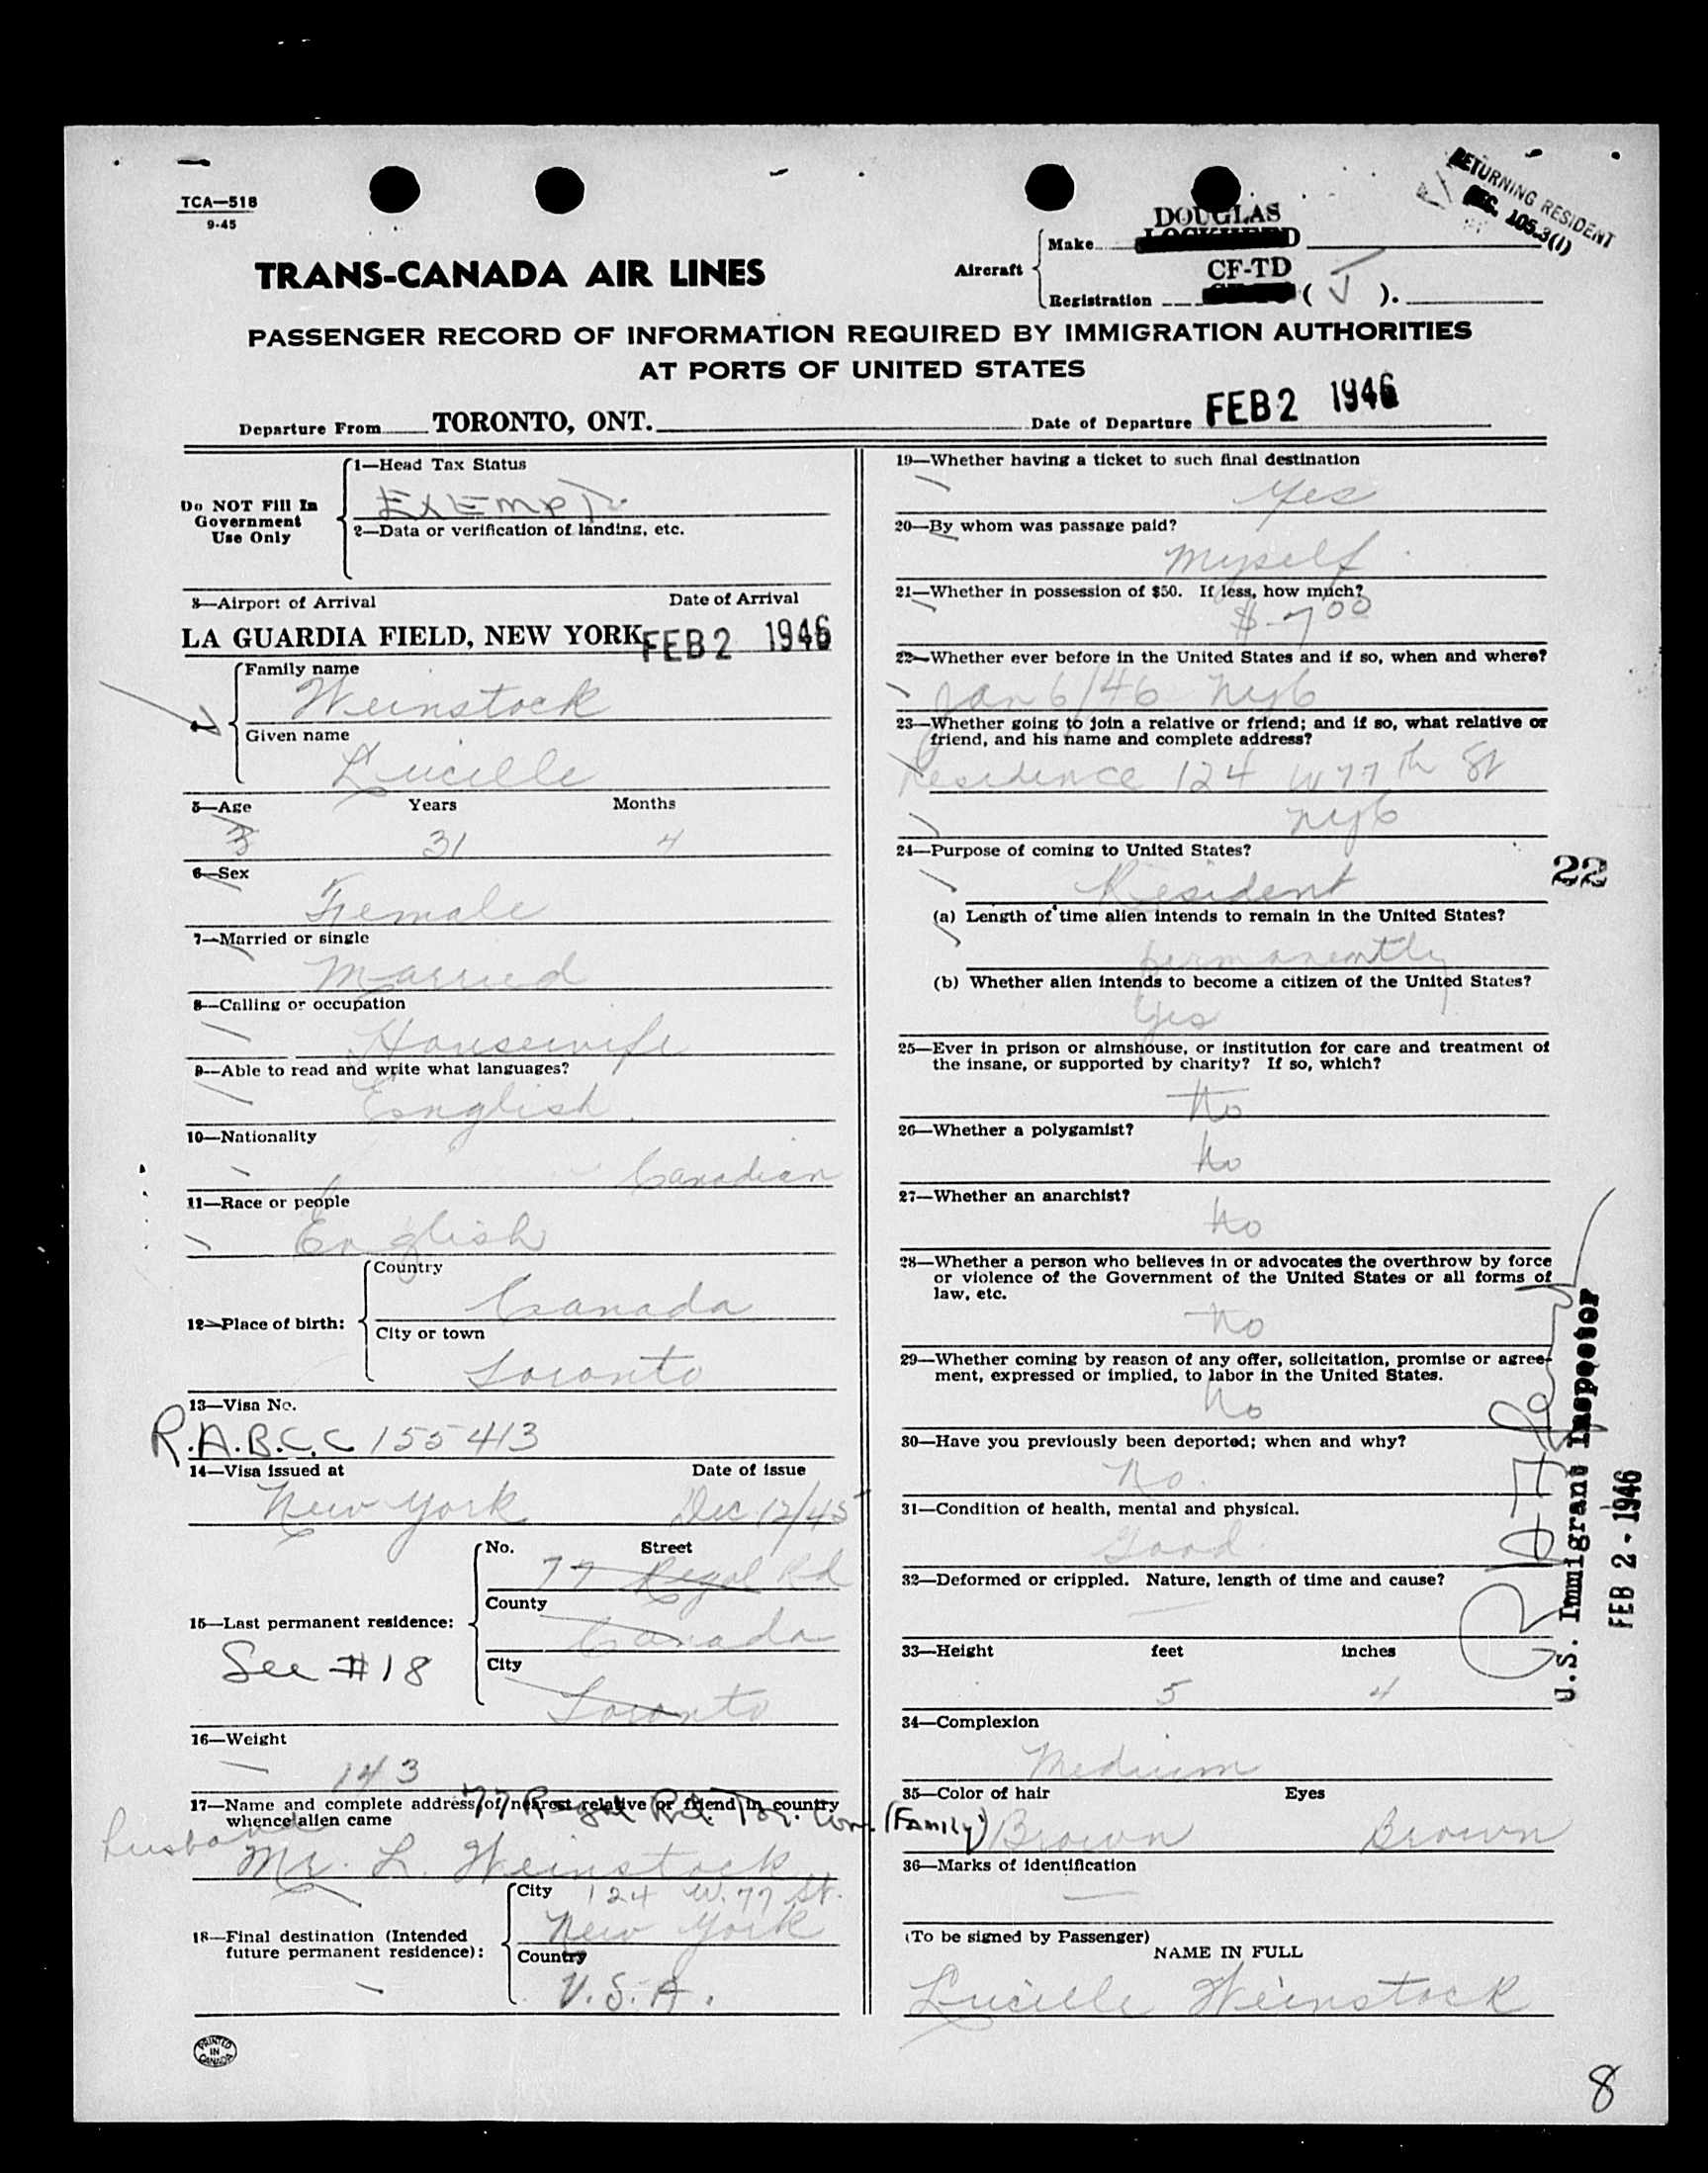 TCA—518
9-45
RETURNING RESIDENT
SEC. 105.3(1)
TRANS-CANADA AIR LINES
Aircraft
DOUGLAS
Make
CF-TD
Registration ( J ).
PASSENGER RECORD OF INFORMATION REQUIRED BY IMMIGRATION AUTHORITIES
AT PORTS OF UNITED STATES
Departure From TORONTO, ONT. Date of Departure FEB 2 1946
Do NOT Fill In
Government
Use Only
1—Head Tax Status
EXEMPT
2—Data or verification of landing, etc.
3—Airport of Arrival Date of Arrival
LA GUARDIA FIELD, NEW YORK FEB 2 1946
Family name
Weinstock
Given name
Lucille
5—Age Years Months
31 4
6—Sex
Female
7—Married or single
Married
8—Calling or occupation
Housewife
9—Able to read and write what languages?
English.
10—Nationality
Canadian
11—Race or people
English
12—Place of birth:
Country
Canada
City or town
Toronto
13—Visa No.
R.A.B.C.C 155413
14—Visa issued at Date of issue
New York Dec 12/45
15—Last permanent residence:
See #18
No. Street
77 Regal Rd
County
Canada
City
Toronto
16—Weight
143
17—Name and complete address of nearest relative or friend in country
whence alien came
77 Regal Rd. Tor. (Family)
husband
Mr. L. Weinstock
18—Final destination (Intended
future permanent residence):
City 124 W. 77 St.
New York
Country
U.S.A.
PRINTED
IN
CANADA
19—Whether having a ticket to such final destination
Yes
20—By whom was passage paid?
Myself
21—Whether in possession of $50. If less, how much?
$ 7 00
22—Whether ever before in the United States and if so, when and where?
Jan 6/46 NYC
23—Whether going to join a relative or friend; and if so, what relative or
friend, and his name and complete address?
Residence 124 W 77 th St
NYC
24—Purpose of coming to United States?
Resident
22
(a) Length of time alien intends to remain in the United States?
permanently
(b) Whether alien intends to become a citizen of the United States?
Yes
25—Ever in prison or almshouse, or institution for care and treatment of
the insane, or supported by charity? If so, which?
No
26—Whether a polygamist?
No
27—Whether an anarchist?
No
28—Whether a person who believes in or advocates the overthrow by force
or violence of the Government of the United States or all forms of
law, etc.
No
29—Whether coming by reason of any offer, solicitation, promise or agree-
ment, expressed or implied, to labor in the United States.
No
30—Have you previously been deported; when and why?
No.
31—Condition of health, mental and physical.
Good.
32—Deformed or crippled. Nature, length of time and cause?
—
33—Height feet inches
5 4
34—Complexion
Medium
35—Color of hair Eyes
Brown Brown
36—Marks of identification
—
(To be signed by Passenger)
NAME IN FULL
Lucille Weinstock
U.S. Immigrant Inspector
FEB 2 - 1946
8